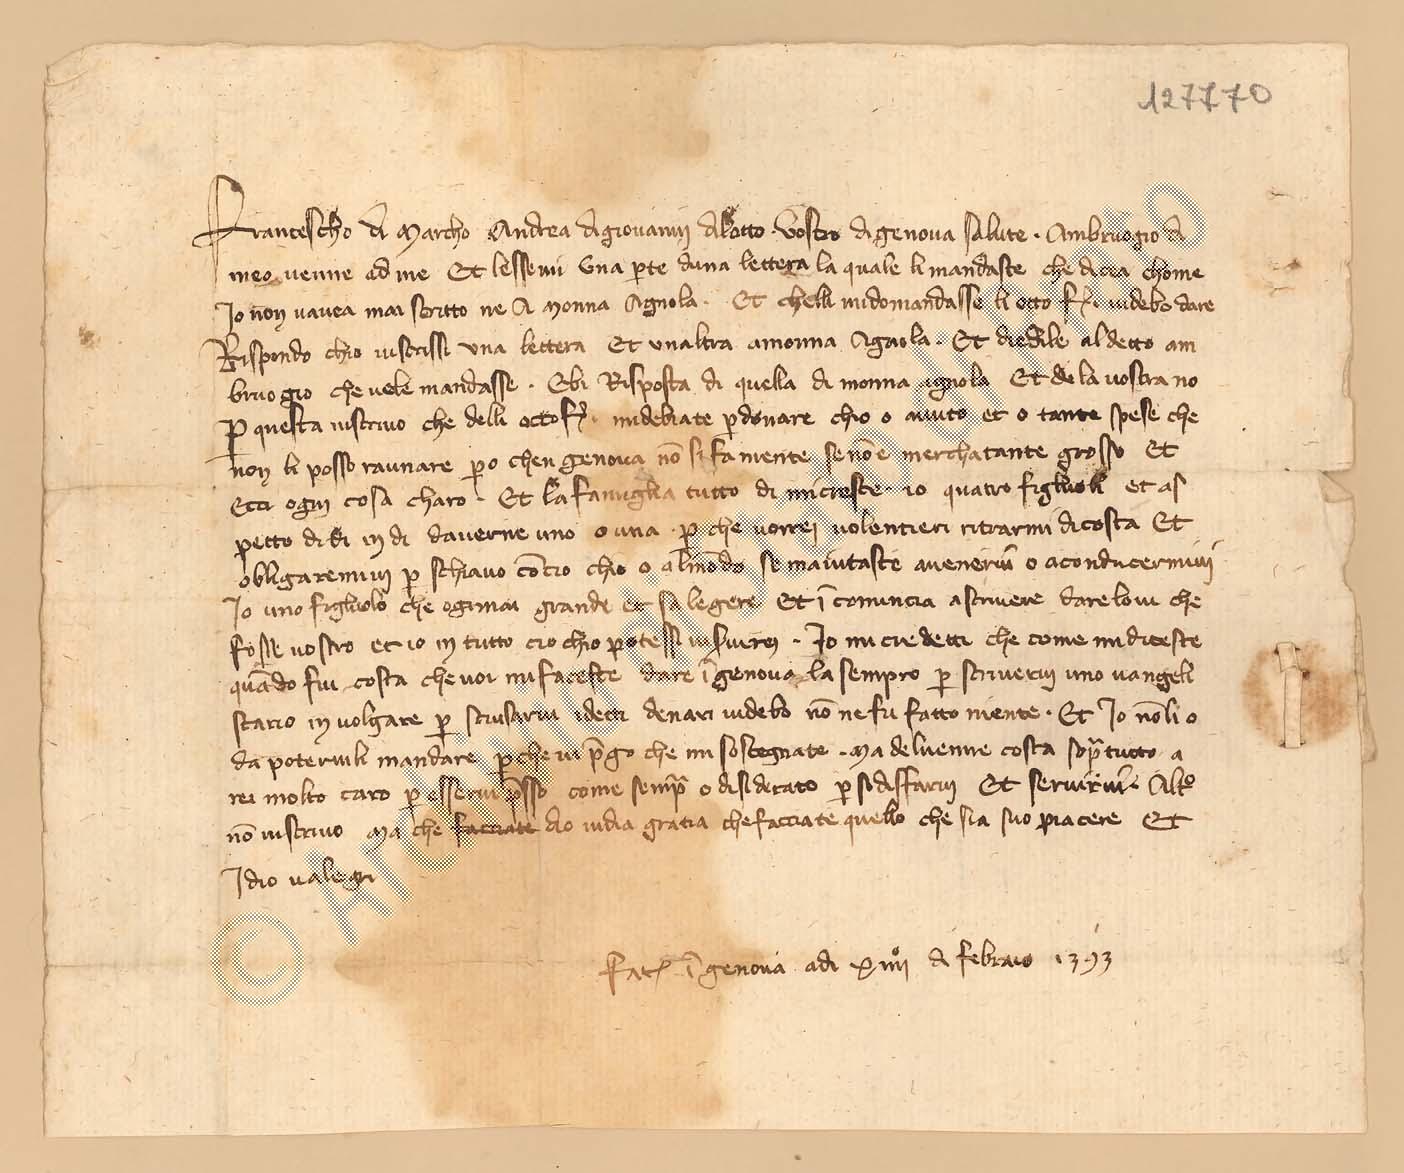 127770
Francescho di Marcho Andrea di giovanni di lotto vostro di genova salute . Ambruogio di
meo venne ad me Et lessemi una pte duna lettera la quale li mandaste che dicea chome
Io non vavea mai scritto ne A monna Agnola . Et chelli midomandasse li otto f. videbo dare
Rispondo chio viscrissi una lettera Et unaltra amonna Agnola . Et diedile al detto am
bruogio che vele mandasse . Ebi Risposta di quella di monna agnola Et de la vostra no
P questa viscrivo che delli otto f. mi debiate pdonare chio o avuto et o tante spese che
non li posso raunare po chen genova nō si fa niente se nōe merchatante grosso Et
Ecci ogni cosa charo . Et la famiglia tutto di micresce . io quatro figliuoli et as
petto di di in di daverne uno o una . p che vorrei volentieri ritrarmi di costa Et
obligaremivi p schiavo cōcio chio o almōdo se maiutaste a venirvi o aconducermivi
Io uno figliuolo che ogimai grande et sa legere Et ī comincia a scrivere darelovi che
fosse vostro et io in tutto cio chio potessi vi servirei . Io mi credetti che come mi diceste
quādo fui costa che voi mi faceste dare ī genova la sempro p scrivervi uno vangeli
stario in volgare p scusarvi i detti denari videbo nō ne fu fatto niente . Et Io nō li o
da potervili mandare p che vi pgo che mi sostegnate . Ma del venire costa sopra tutto a
rei molto caro p esservi psso come sempre o disiderato p sodisfarvi Et servirvi . Alto
nō viscrivo Ma che facciate dio vi dia gratia che facciate quello che sia suo piacere Et
Idio valegri
Fatt ī genova adi xiiii di febraio 1393
© Archivio di Stato di Prato